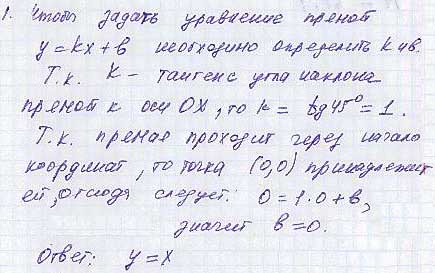 1. Чтобы задать уравнение прямой
y = kx + в необходимо определить k и в.
Т.к. k - тангенс угла наклона
прямой к оси OX, то k = tg 45° = 1.
Т.к. прямая проходит через начало
координат, то точка (0,0) принадлежит
ей, отсюда следует: 0 = 1·0 + в,
значит в = 0.
Ответ: y = x